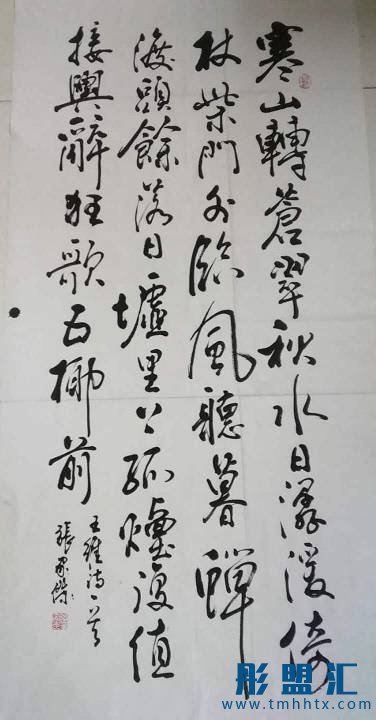 寒山轉蒼翠秋水日潺湲倚
杖柴門外臨風聽暮蟬
渡頭餘落日墟里上孤煙復值
接輿醉狂歌五柳前
王維詩一首
張家傑
彤盟汇
www.tmhhtx.com